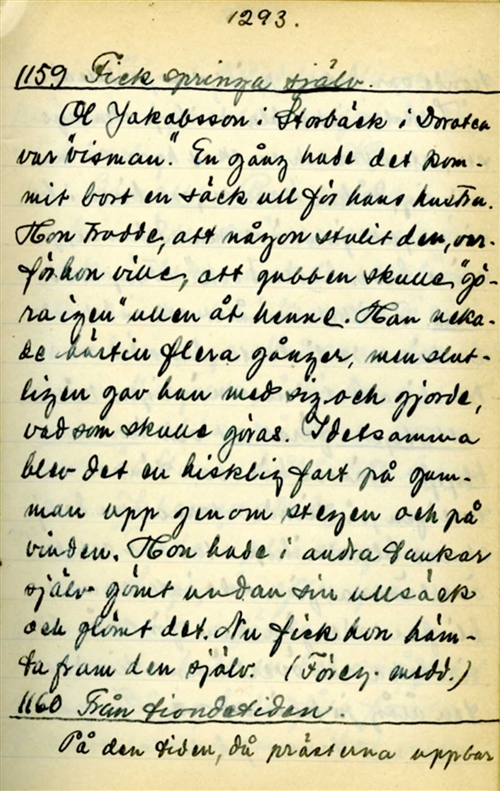 1293.
1159 Fick springa själv.
Ol Jakobsson i Storbäck i Dorotea
var "visman". En gång hade det kom-
mit bort en säck ull för hans hustru.
Hon trodde, att någon stulit den, var-
för hon ville, att gubben skulle "gö-
ra igen" ullen åt henne. Han neka-
de härtill flera gånger, men slut-
ligen gav han med sig och gjorde,
vad som skulle göras. I detsamma
blev det en hisklig fart på gum-
man upp genom stegen och på
vinden. Hon hade i andra tankar
själv gömt undan sin ullsäck
och glömt det. Nu fick hon häm-
ta fram den själv. (Föreg. medd.)
1160 Från tiondetiden.
På den tiden, då prästerna uppbar